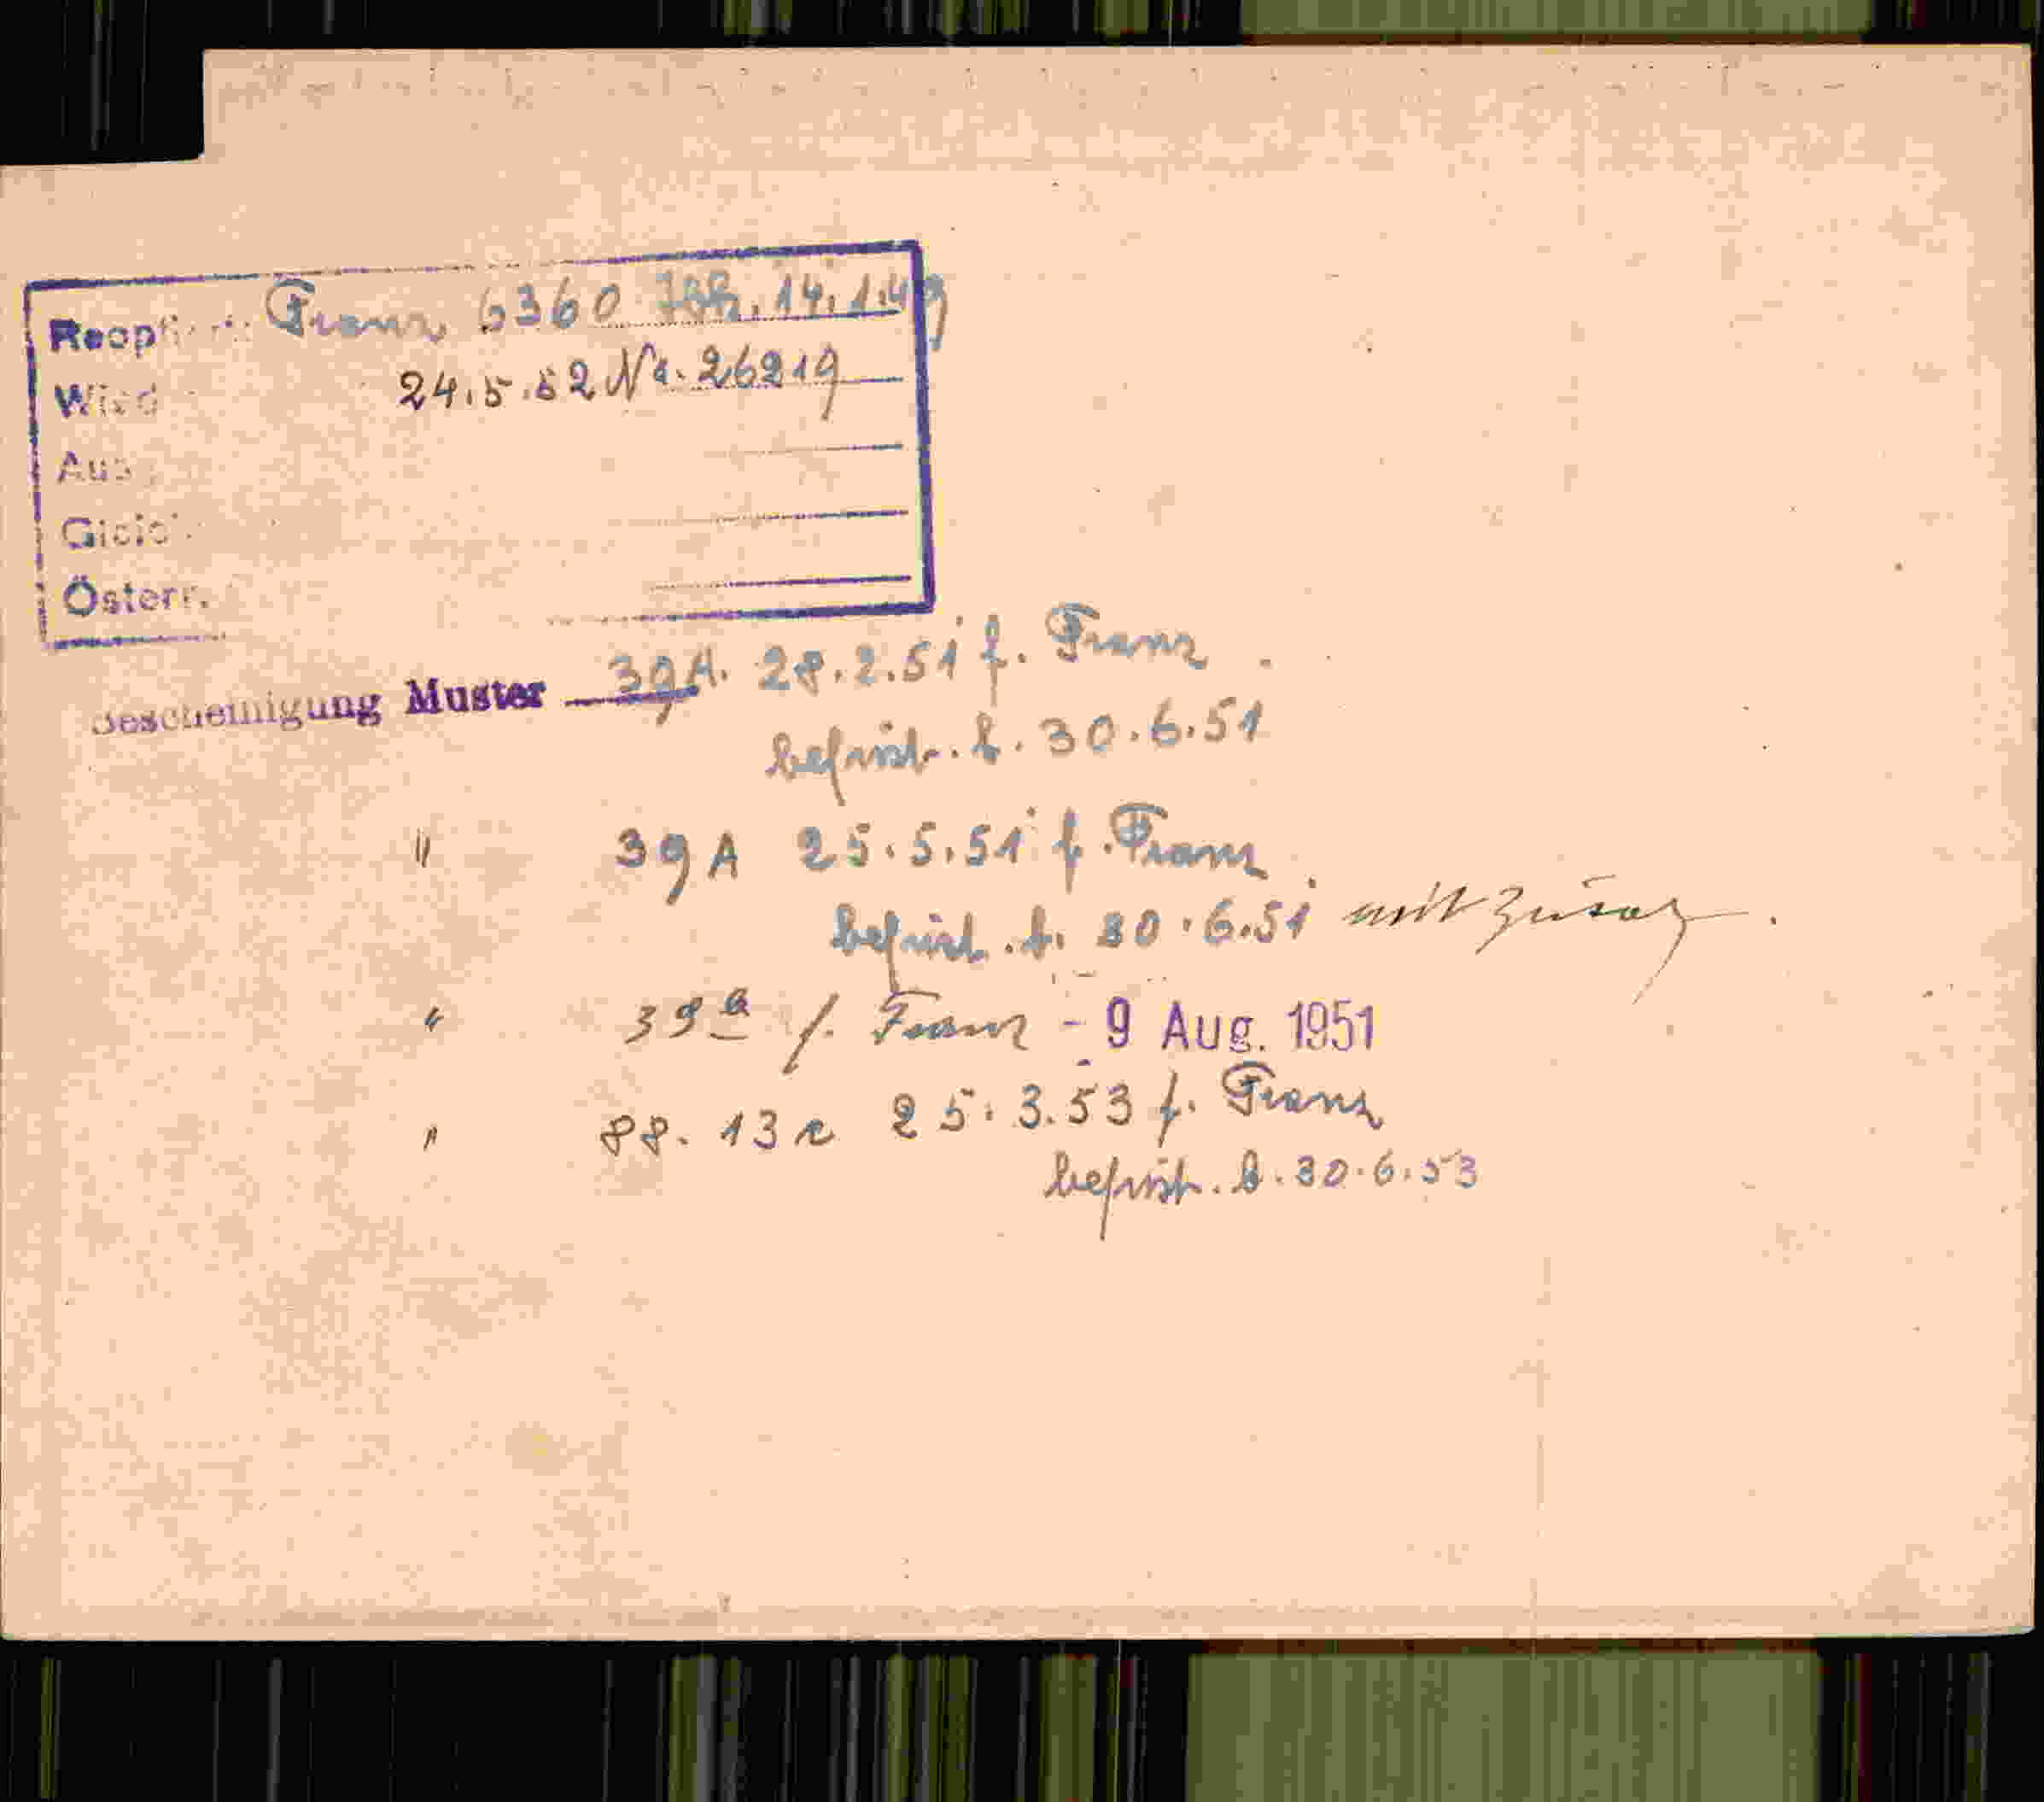 Reopt Franz 6360 14.1.49
Wird 24.5.52 Nr. 26219
Aus
Gleic
Österr.
Bescheinigung Muster 39A. 28.2.51 f. Franz
befrist. b. 30.6.51
" 39A 25.5.51 f. Franz
befrist. b. 30.6.51 mit Zusatz.
" 39a f. Franz - 9 Aug. 1951
" 88. 13 25.3.53 f. Franz
befrist. b. 30.6.53